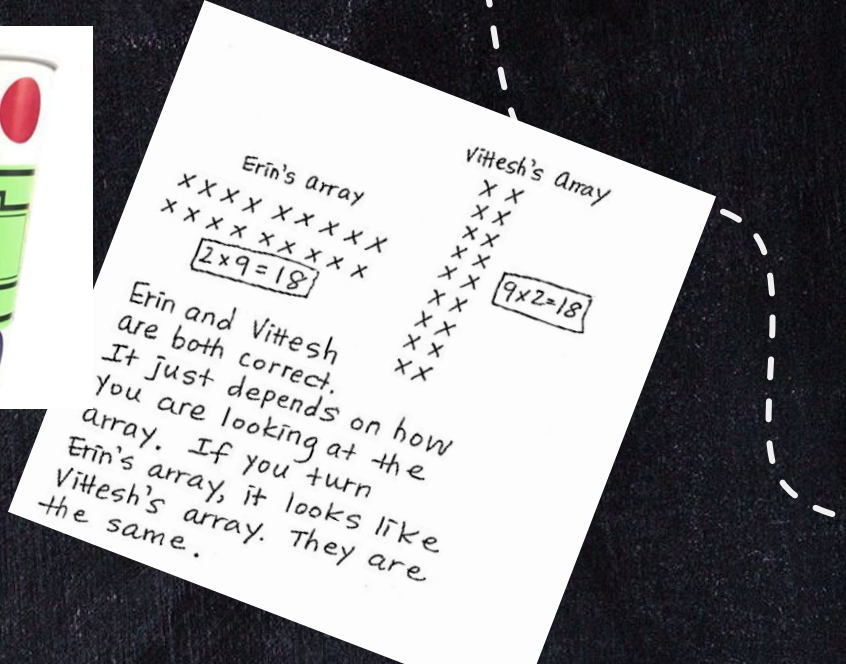 Erin's array
x x x x x x x x x
x x x x x x x x x
2 x 9 = 18
Vittesh's array
x x
x x
x x
x x
x x
x x
x x
x x
x x
9x2=18
Erin and Vittesh
are both correct.
It just depends on how
you are looking at the
array. If you turn
Erin's array, it looks like
Vittesh's array. They are
the same.